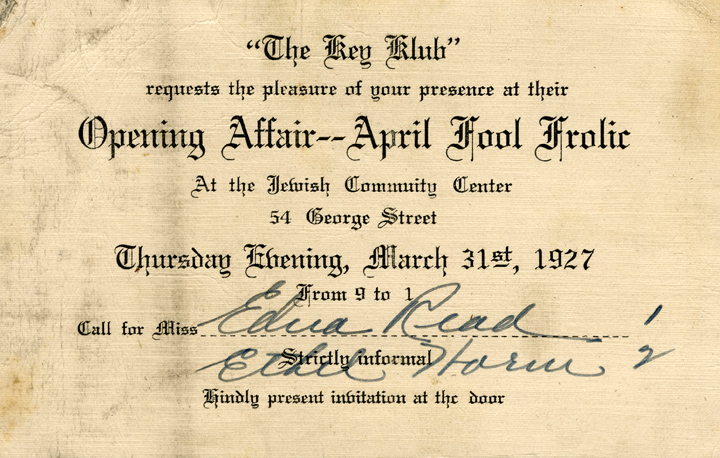 "The Key Klub"
requests the pleasure of your presence at their
Opening Affair--April Fool Frolic
At the Jewish Commuity Center
54 George Street
Thursday Evening, March 31st, 1927
From 9 to 1
Call for Miss Edna Read 1
Strictly informal
Ethel 2
Kindly present invitation at the door